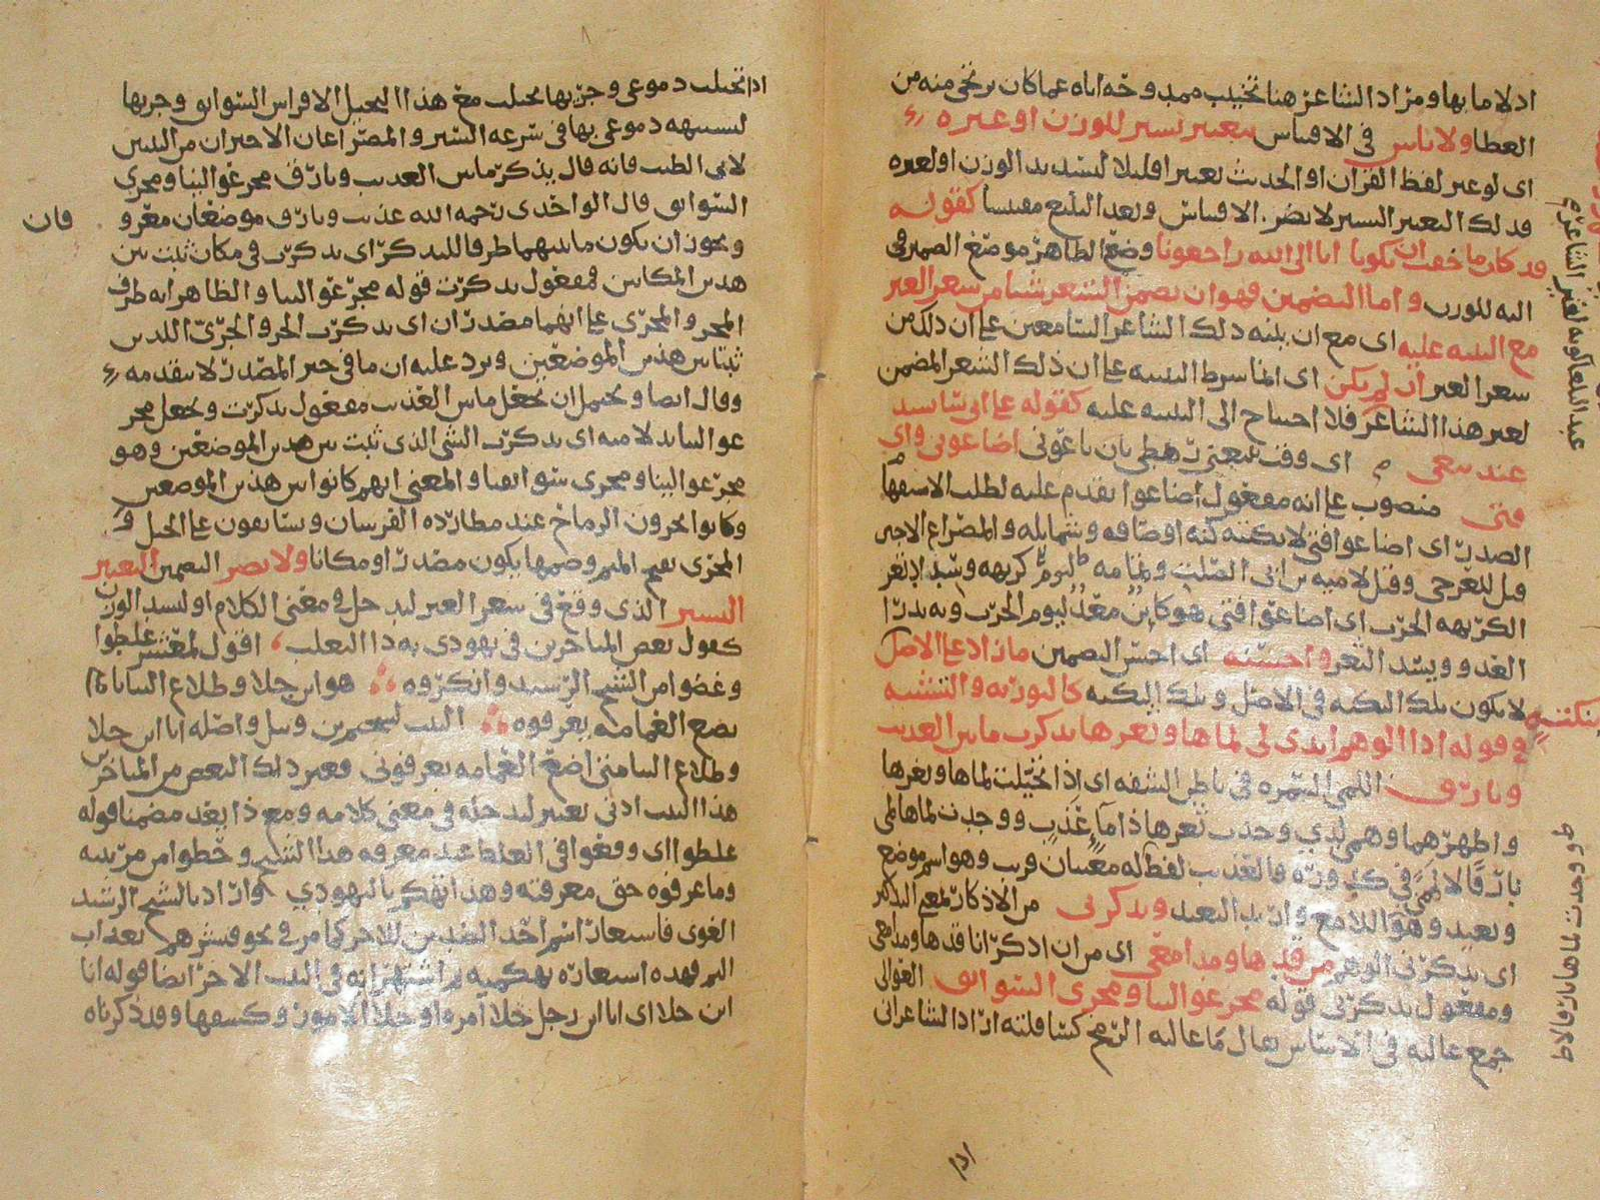 اد لا ما بها ومراد الشاعر هنا تخييب ممدوحه اياه عما كان يرتجى منه من
العطا ولا باس في الاقتباس بتغيير يسير للوزن او غيره
اى لو غير لفظ القران او الحديث تغييرا قليلا لتسديد الوزن او لغيره
فذلك التغيير اليسير لا يضر الاقتباس ويعد البليغ مقتبسا كقوله
قد كان ما خفت ان يكونا انا الى الله راجعونا وضع الظاهر موضع الضمير في
اليه للوزن واما التضمين فهو ان يضمن الشعر شيا من شعر الغير
مع التنبيه عليه اى مع ان ينبه ذلك الشاعر السامعين على ان ذلك من
شعر الغير ان لم يكن اى انما شرط التنبيه على ان ذلك الشعر المضمن
لغير هذا الشاعر فلا احتياج الى التنبيه عليه كقوله على انى سانشد
عند بيعى اى وقت بيعى رهطى بان باعونى اضاعونى واى
فتى منصوب على انه مفعول اضاعوا يقدم عليه لطلب الاستفهام
الصدر اى اضاعوا فتى لا يكتنه كنه اوصافه وشمايله والمصراع الاخير
قيل للعرجى وقيل لاميه بن ابى الصلت وتمامه ليوم كريهه وسداد ثغر
الكريهه الحرب اى اضاعوا فتى هو كاين معد ليوم الحرب وبه يدرا
العدو ويسد الثغر واحسنه اى احسن التضمين ما زاد على الاصل
بنكتة لا يكون تلك النكته فى الاصل وتلك النكته كالتوريه والتشبيه
فى قوله اذا الوهم ابدى لى لماها وثغرها تذكرت ما بين العذيب
وبارق اللمى السمره فى باطن الشفه اى اذا تخيلت لماها وثغرها
واظهرهما وهمى لدي وجدت ثغرها ذا ماء عذب ووجدت لماها لمى
بارقا لالمى فى فالعذيب لفظ له معنيان قريب وهو اسم موضع
وبعيد وهو اللامع واريد البعيد ويذكرنى من الاذكار لمعنى التذكير
اى يذكرنى الوهم من قدها ومدامعى اى من ان اذكرانا قدها ومدامعى
ومفعول يذكرنى قوله مجر عوالينا ومجرى السوابق العوالى
جمع عاليه فى الاساس يقال ما عاليه الرمح كسافلته اراد الشاعر انى
عبد الله لكونه لغير الشاعر
ووجدت لماها بارقا لاط
اذا تخيلت دموعى وجريها تخيلت مع هذا التخيل الافراس السوابق وجريها
لشبهه دموعى بها فى سرعه السير والمصراعان الاخيران من البيتين
لابى الطيب فانه قال يذكر ما بين العذيب وبارق مجر عوالينا ومجرى
السوابق قال الواحدى رحمه الله عذيب وبارق موضعان معرو
فان
ويجوز ان يكون ما بينهما ظرفا للتذكر اى تذكرت فى مكان ثبت بين
هذين المكانين فمفعول تذكرت قوله مجر عوالينا والظاهر انه ظرف
المجر والمجرى على انهما مصدران اى تذكرت الجر والجرى اللذين
ثبتا بين هذين الموضعين ويرد عليه ان ما فى حيز المصدر لا يتقدمه
وقال ايضا ويحتمل ان يجعل ما بين العذيب مفعول تذكرت ويجعل مجر
عوالينا بدلا منه اى تذكرت الشى الذى ثبت بين هذين الموضعين وهو
مجر عوالينا ومجرى سوابقنا والمعنى انهم كانوا بين هذين الموضعين
وكانوا يجرون الرماح عند مطارده الفرسان ويسابقون على الخيل و
المجرى بفتح الميم وضمها يكون مصدرا ومكانا ولا يضر التضمين التغيير
اليسير الذى وقع فى شعر الغير ليدخل فى معنى الكلام او لتسديد الوزن
كقول بعض المتاخرين فى يهودى به داء الثعلب اقول لمعشر غلطوا
وغضوا من الشيخ الرشيد وانكروه هو ابن جلا وطلاع الثنايا
يضع العمامه يعرفوه البيت لسحيم بن وثيل واصله انا ابن جلا
وطلاع الثنايا متى اضع العمامه يعرفونى فغير ذلك البعض من المتاخرين
هذا البيت ادنى تغيير ليدخله فى معنى كلامه ومع ذا يعد مضمنا قوله
غلطوا اى وقعوا فى الغلط عند معرفه هذا الشيخ وحطوا من مرتبته
وما عرفوه حق معرفته وهذا تهكم باليهودي واراد بالشيخ الرشيد
الغوى فاستعار اسم احد الضدين للاخر كما مر فى نحو فبشرهم بعذاب
اليم فهذه استعاره تهكميه ثم اشتهر انه فى البيت الاخر ايضا قوله انا
ابن جلا اى انا ابن رجل جلا امره او جلا الامور وكشفها وقد ذكرناه